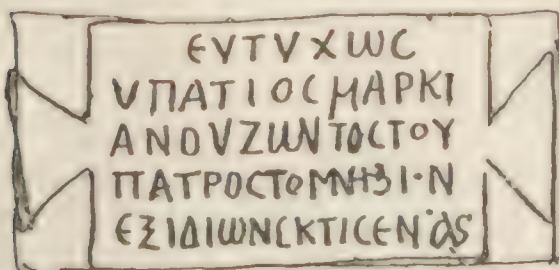 ЄΥΤΥΧωϹ
ΥΠΑΤΙΟϹΜΑΡΚΙ
ΑΝΟΥΖωΝΤΟϹΤΟΥ
ΠΑΤΡΟϹΤΟΜΝΗ3Ι·Ν
ЄΞΙΔΙωΝЄΚΤΙϹЄΝ